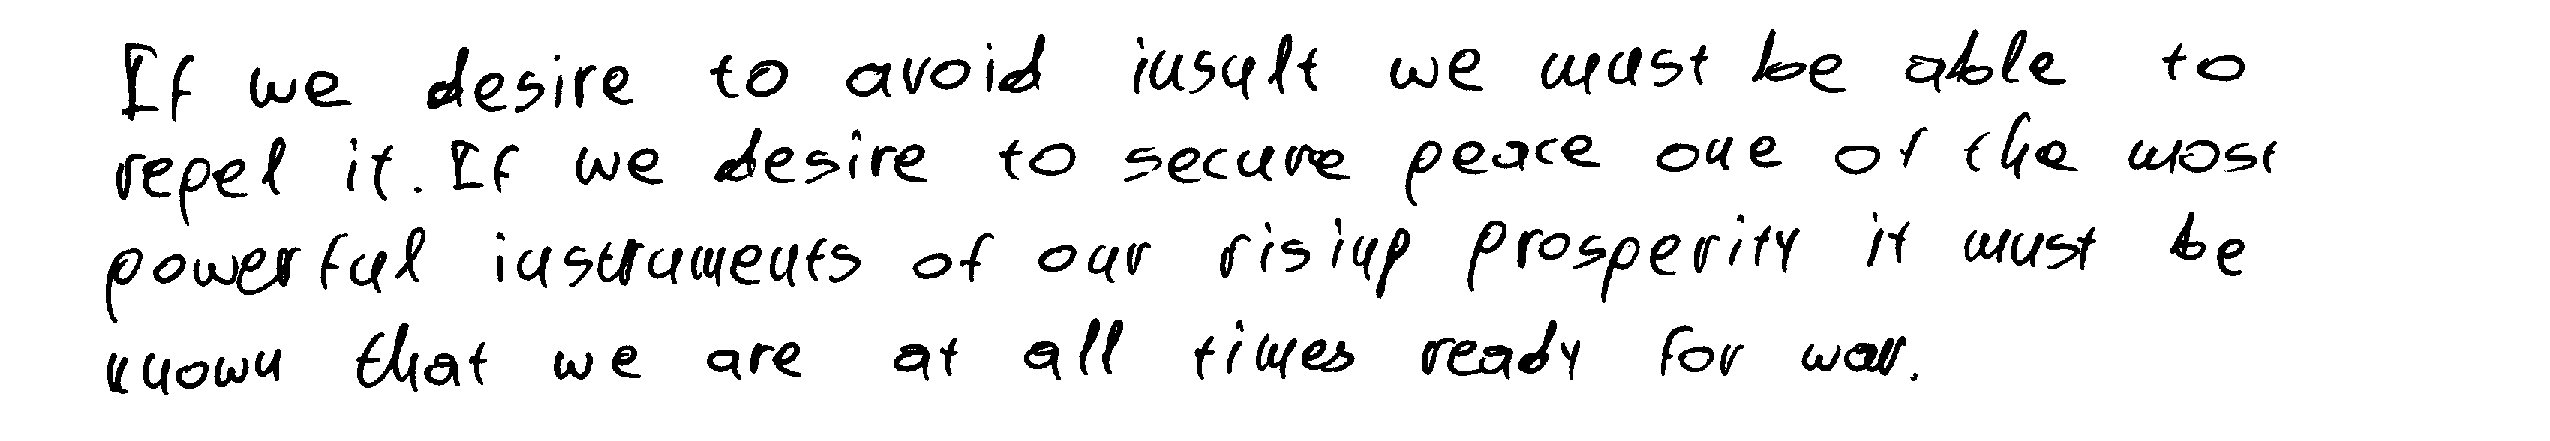 If we desire to avoid insult we must be able to
repel it. If we desire to secure peace one of the most
powerful instruments of our rising prosperity it must be
known that we are at all times ready for war.